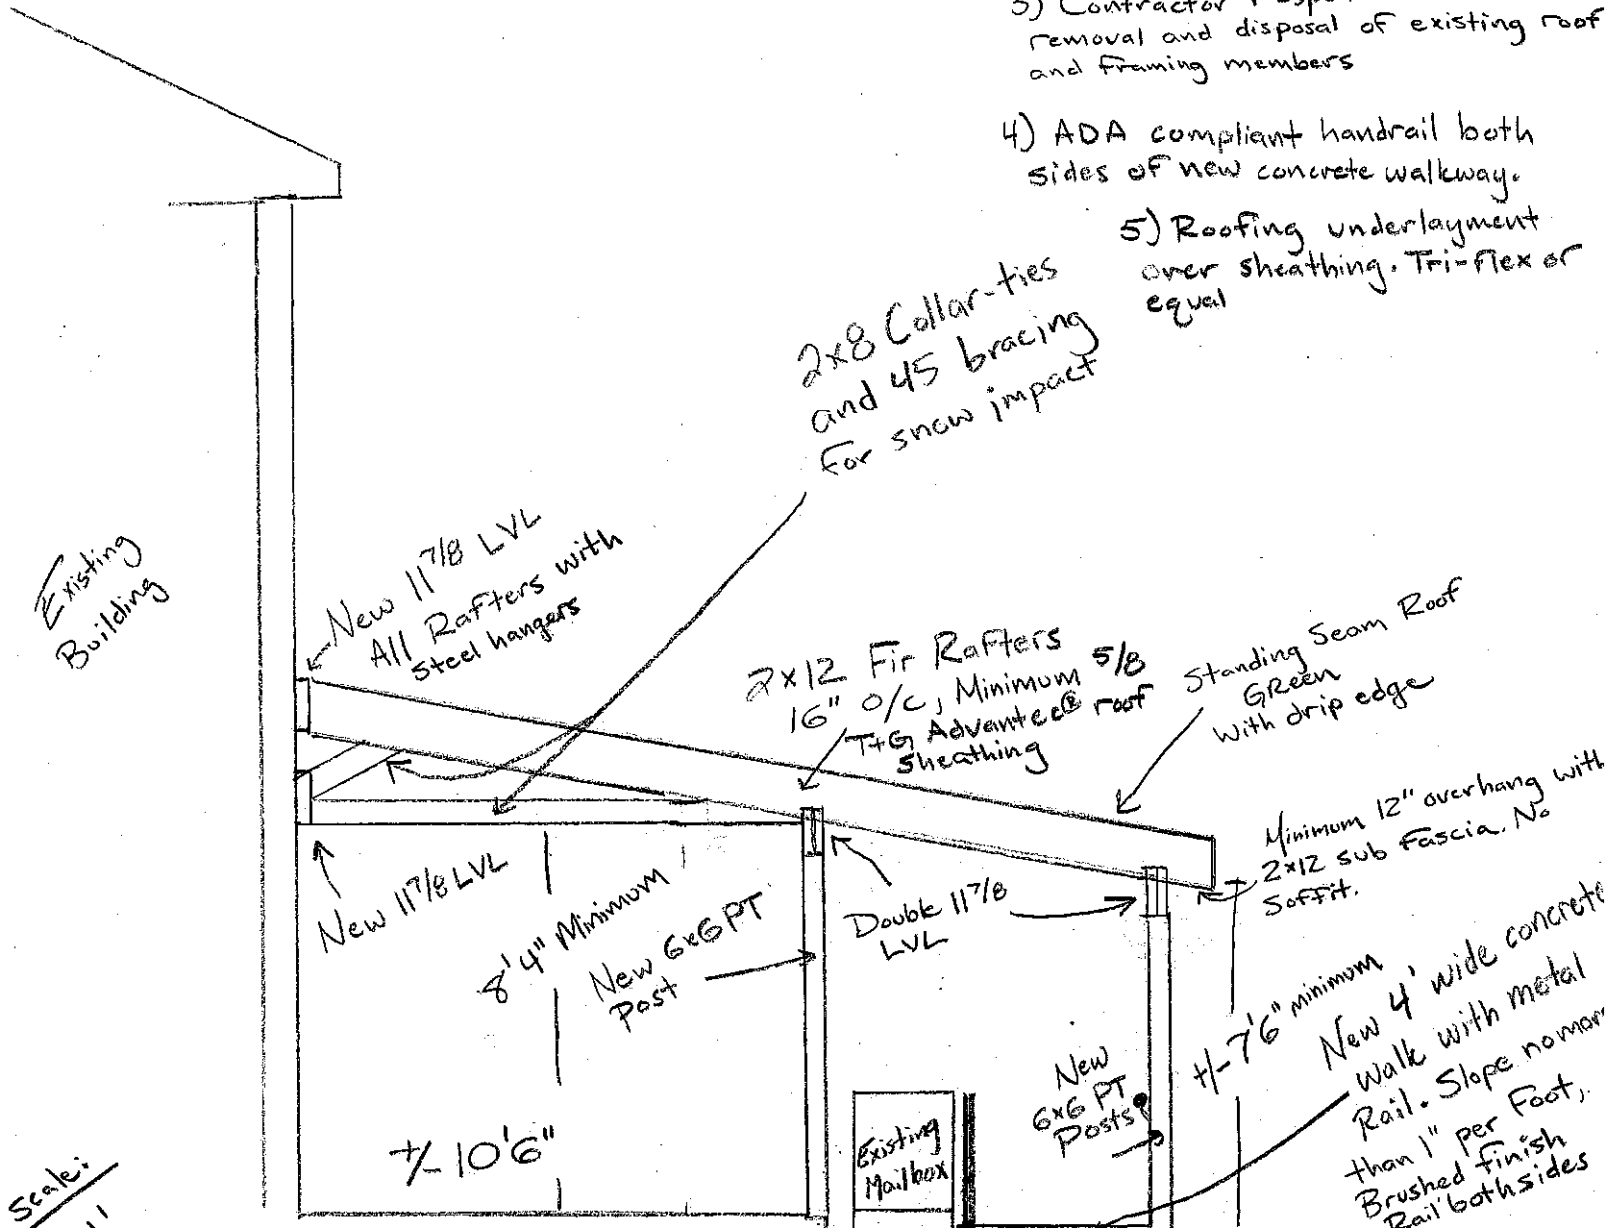 3) Contractor
removal and disposal of existing roof
and framing members
4) ADA compliant handrail both
sides of new concrete walkway.
5) Roofing underlayment
over sheathing. Tri-flex or
equal
2x8 Collar-ties
and 45 bracing
for snow impact
Existing
Building
New 11 7/8 LVL
All Rafters with
Steel hangers
2x12 Fir Rafters
16" O/C, Minimum 5/8
T+G Advantec® roof
Sheathing
Standing Seam Roof
GReen
with drip edge
Minimum 12" overhang with
2x12 sub Fascia. No
Soffit.
New 11 7/8 LVL
8'4" Minimum
New 6x6 PT
Post
Double 11 7/8
LVL
+/- 7'6" minimum
New 4' wide concrete
walk with metal
Rail. Slope no more
than 1" per Foot,
Brushed finish
Rail both sides
New
6x6 PT
Posts
Existing
Mailbox
+/- 10'6"
Scale: